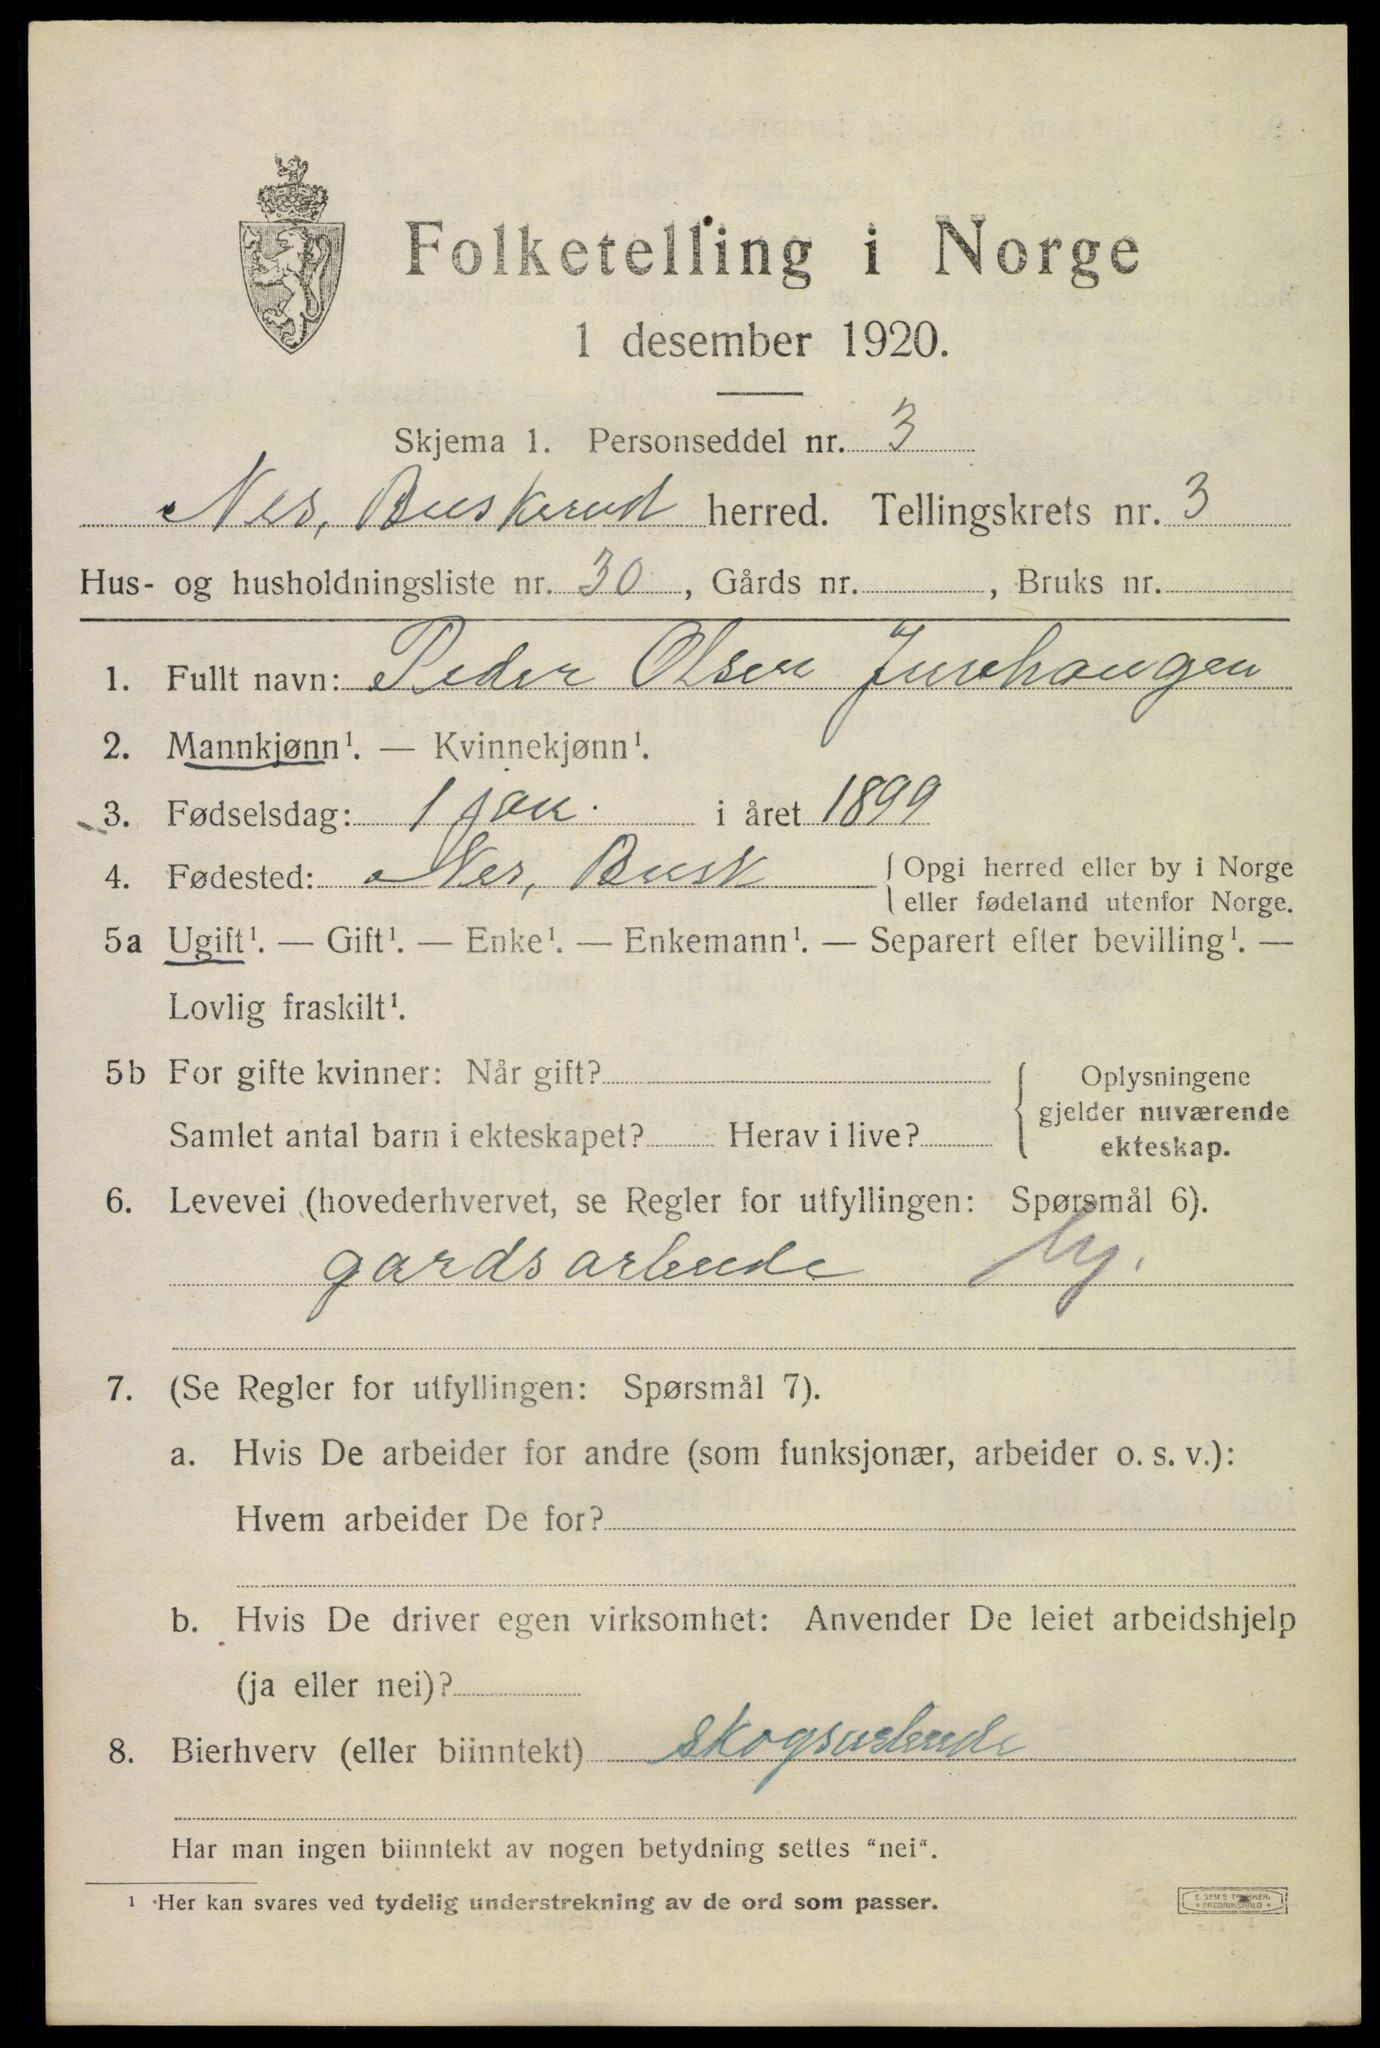 Folketelling i Norge
1 desember 1920.
Skjema 1. Personseddel nr. 3
Nes, Buskerud herred. Tellingskrets nr. 3
Hus- og husholdningsliste nr. 30, Gårds nr. , Bruks nr.
1. Fullt navn: Peder Olsen
2. Mannkjønn¹. — Kvinnekjønn¹.
3. Fødselsdag: 1 jan. i året 1899
4. Fødested: Nes, Busk { Opgi herred eller by i Norge
eller fødeland utenfor Norge.
5a Ugift¹. — Gift¹. — Enke¹. — Enkemann¹. — Separert efter bevilling¹. —
Lovlig fraskilt¹.
5b For gifte kvinner: Når gift?
Samlet antal barn i ekteskapet? Herav i live?
{ Oplysningene
gjelder nuværende
ekteskap.
6. Levevei (hovederhvervet, se Regler for utfyllingen: Spørsmål 6).
gardsarbeide
7. (Se Regler for utfyllingen: Spørsmål 7).
a. Hvis De arbeider for andre (som funksjonær, arbeider o. s. v.):
Hvem arbeider De for?
b. Hvis De driver egen virksomhet: Anvender De leiet arbeidshjelp
(ja eller nei)?
8. Bierhverv (eller biinntekt) skogsarbeide
Har man ingen biinntekt av nogen betydning settes "nei".
¹ Her kan svares ved tydelig understrekning av de ord som passer.
E. SEM'S TRYKKERI
FREDRIKSHALD